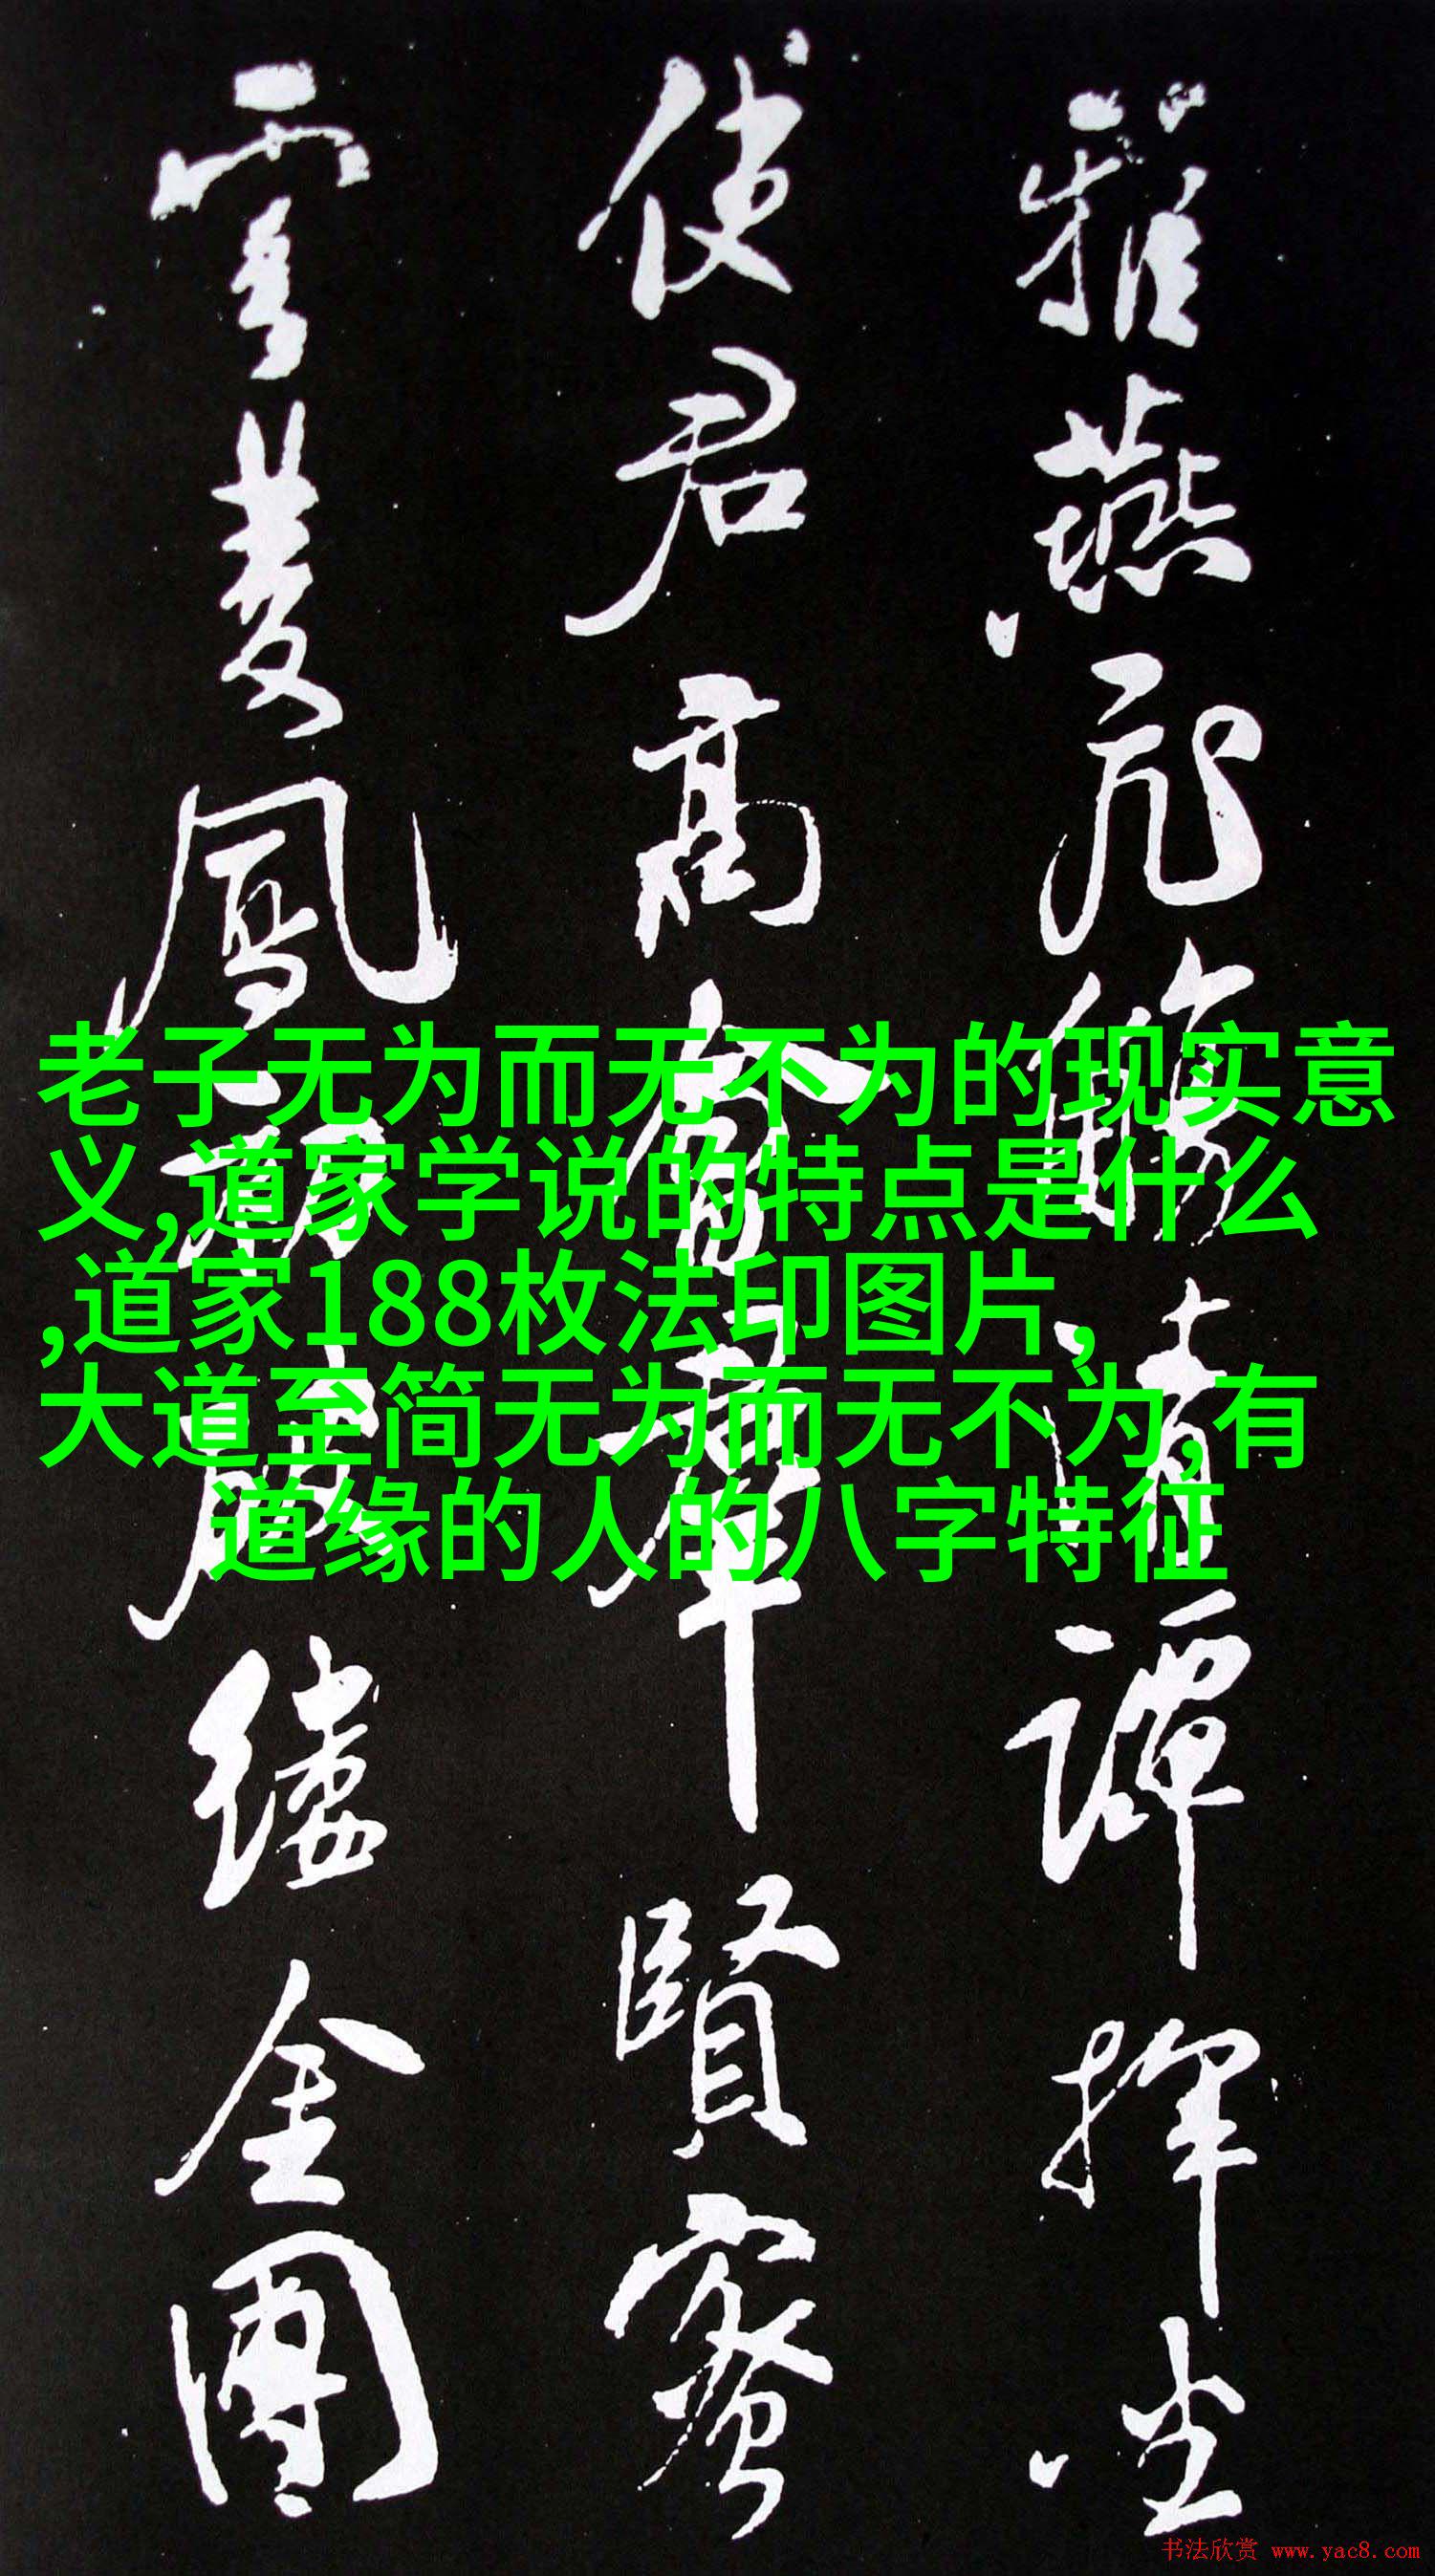 雅燕飛觴清譚揮坐
使君高會群賢密
雲雙鳳初破縷金團
老子无为而无不为的现实意
义,道家学说的特点是什么
,道家188枚法印图片,
大道至简无为而无不为,有
道缘的人的八字特征
书法欣赏 www.yac8.com